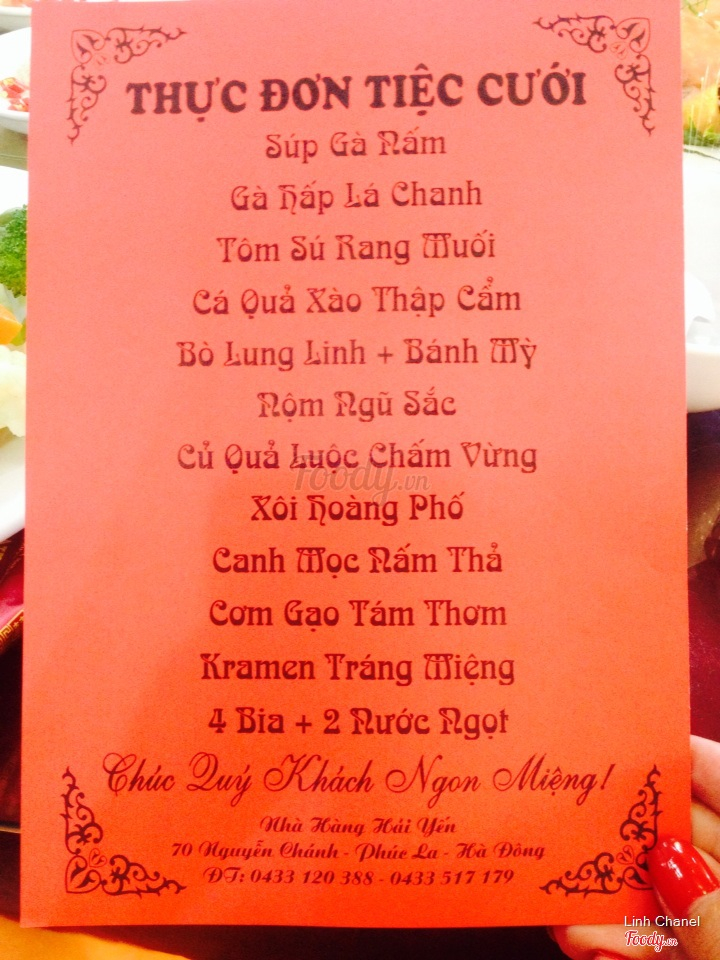 THỰC ĐƠN TIỆC CƯỚI
Súp Gà Nấm
Gà Hấp Lá Chanh
Tôm Sú Rang Muối
Cá Quả Xào Thập Cẩm
Bò Lung Linh + Bánh Mỳ
Nộm Ngũ Sắc
Củ Quả Luộc Chấm Vừng
Foody.vn
Xôi Hoàng Phố
Canh Mọc Nấm Thả
Cơm Gạo Tám Thơm
Kramen Tráng Miệng
4 Bia + 2 Nước Ngọt
Chúc Quý Khách Ngon Miệng!
Nhà Hàng Hải Yến
70 Nguyễn Chánh - Phúc La - Hà Đông
ĐT: 0433 120 388 - 0433 517 179
Linh Chanel
Foody.vn